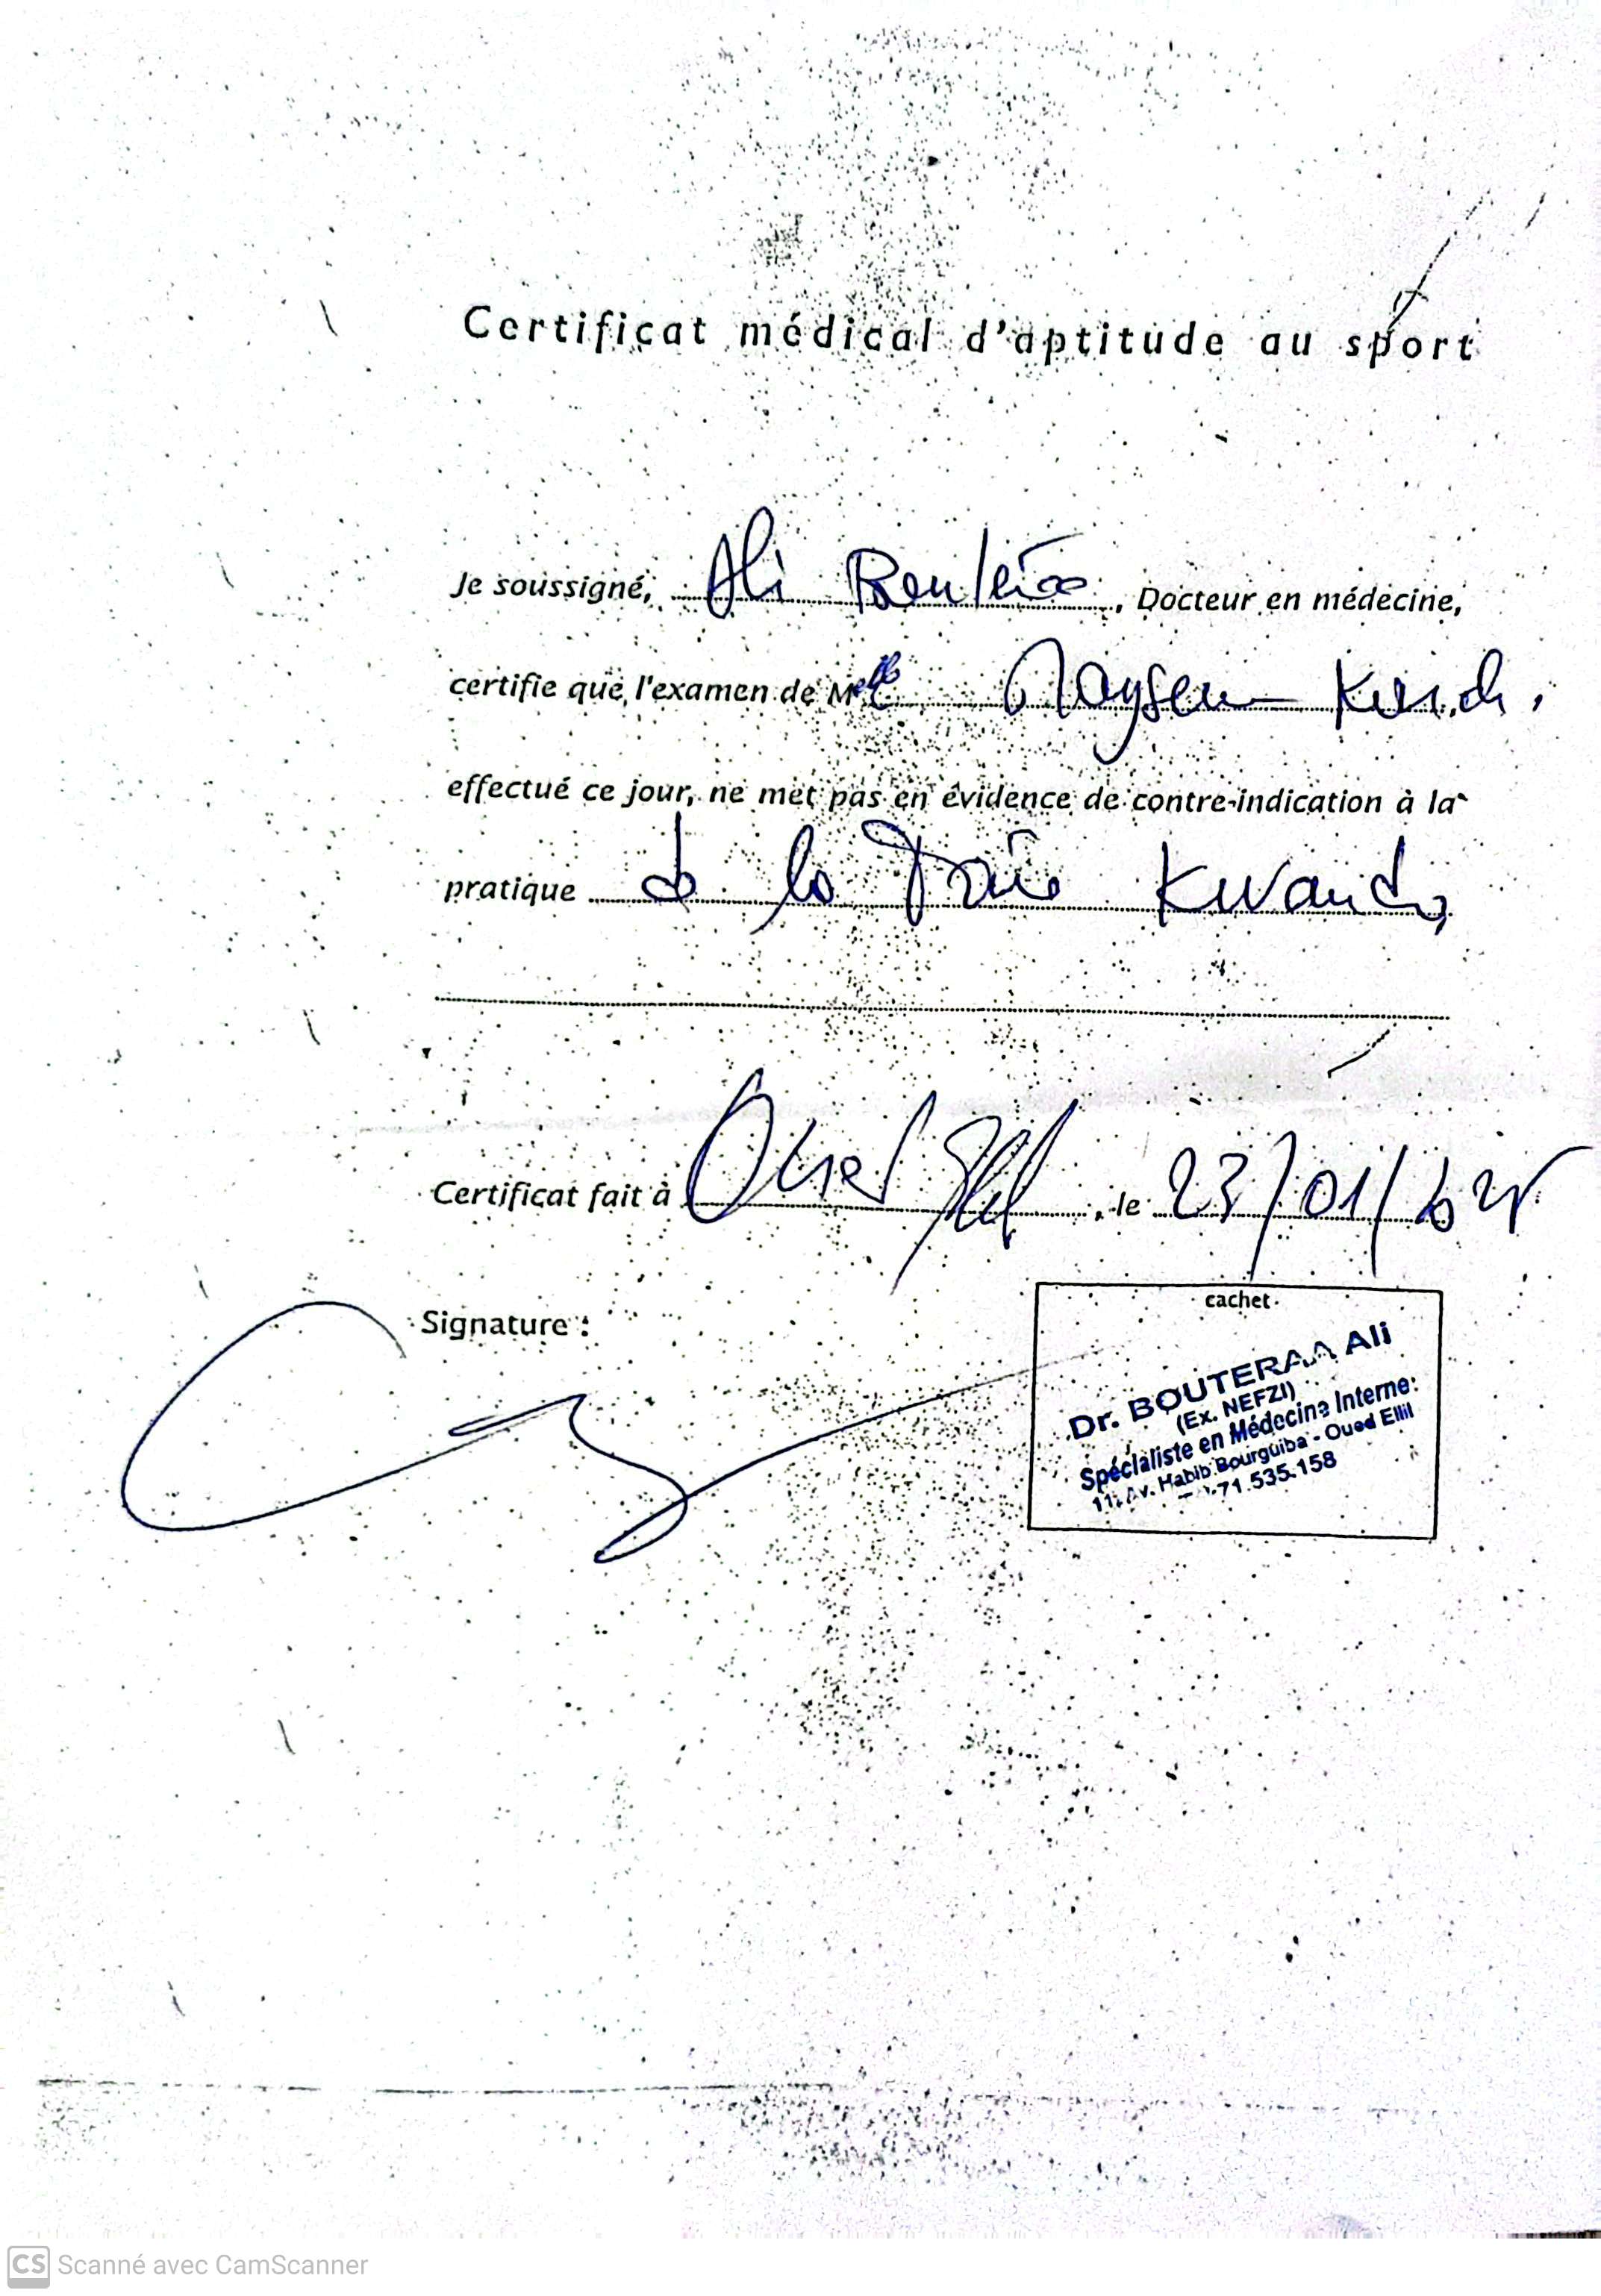 Certificat médical d'aptitude au sport
Je soussigné, Ali Bouteraa, Docteur en médecine,
certifie que l'examen de Melle Maysem
effectué ce jour, ne met pas en évidence de contre-indication à la
pratique de la
Certificat fait à Oued Ellil, le 23/01/
Signature :
cachet
Dr. BOUTERAA Ali
(Ex. NEFZI)
Spécialiste en Médecine Interne
11, Av. Habib Bourguiba - Oued Ellil
71.535.158
CS Scanné avec CamScanner